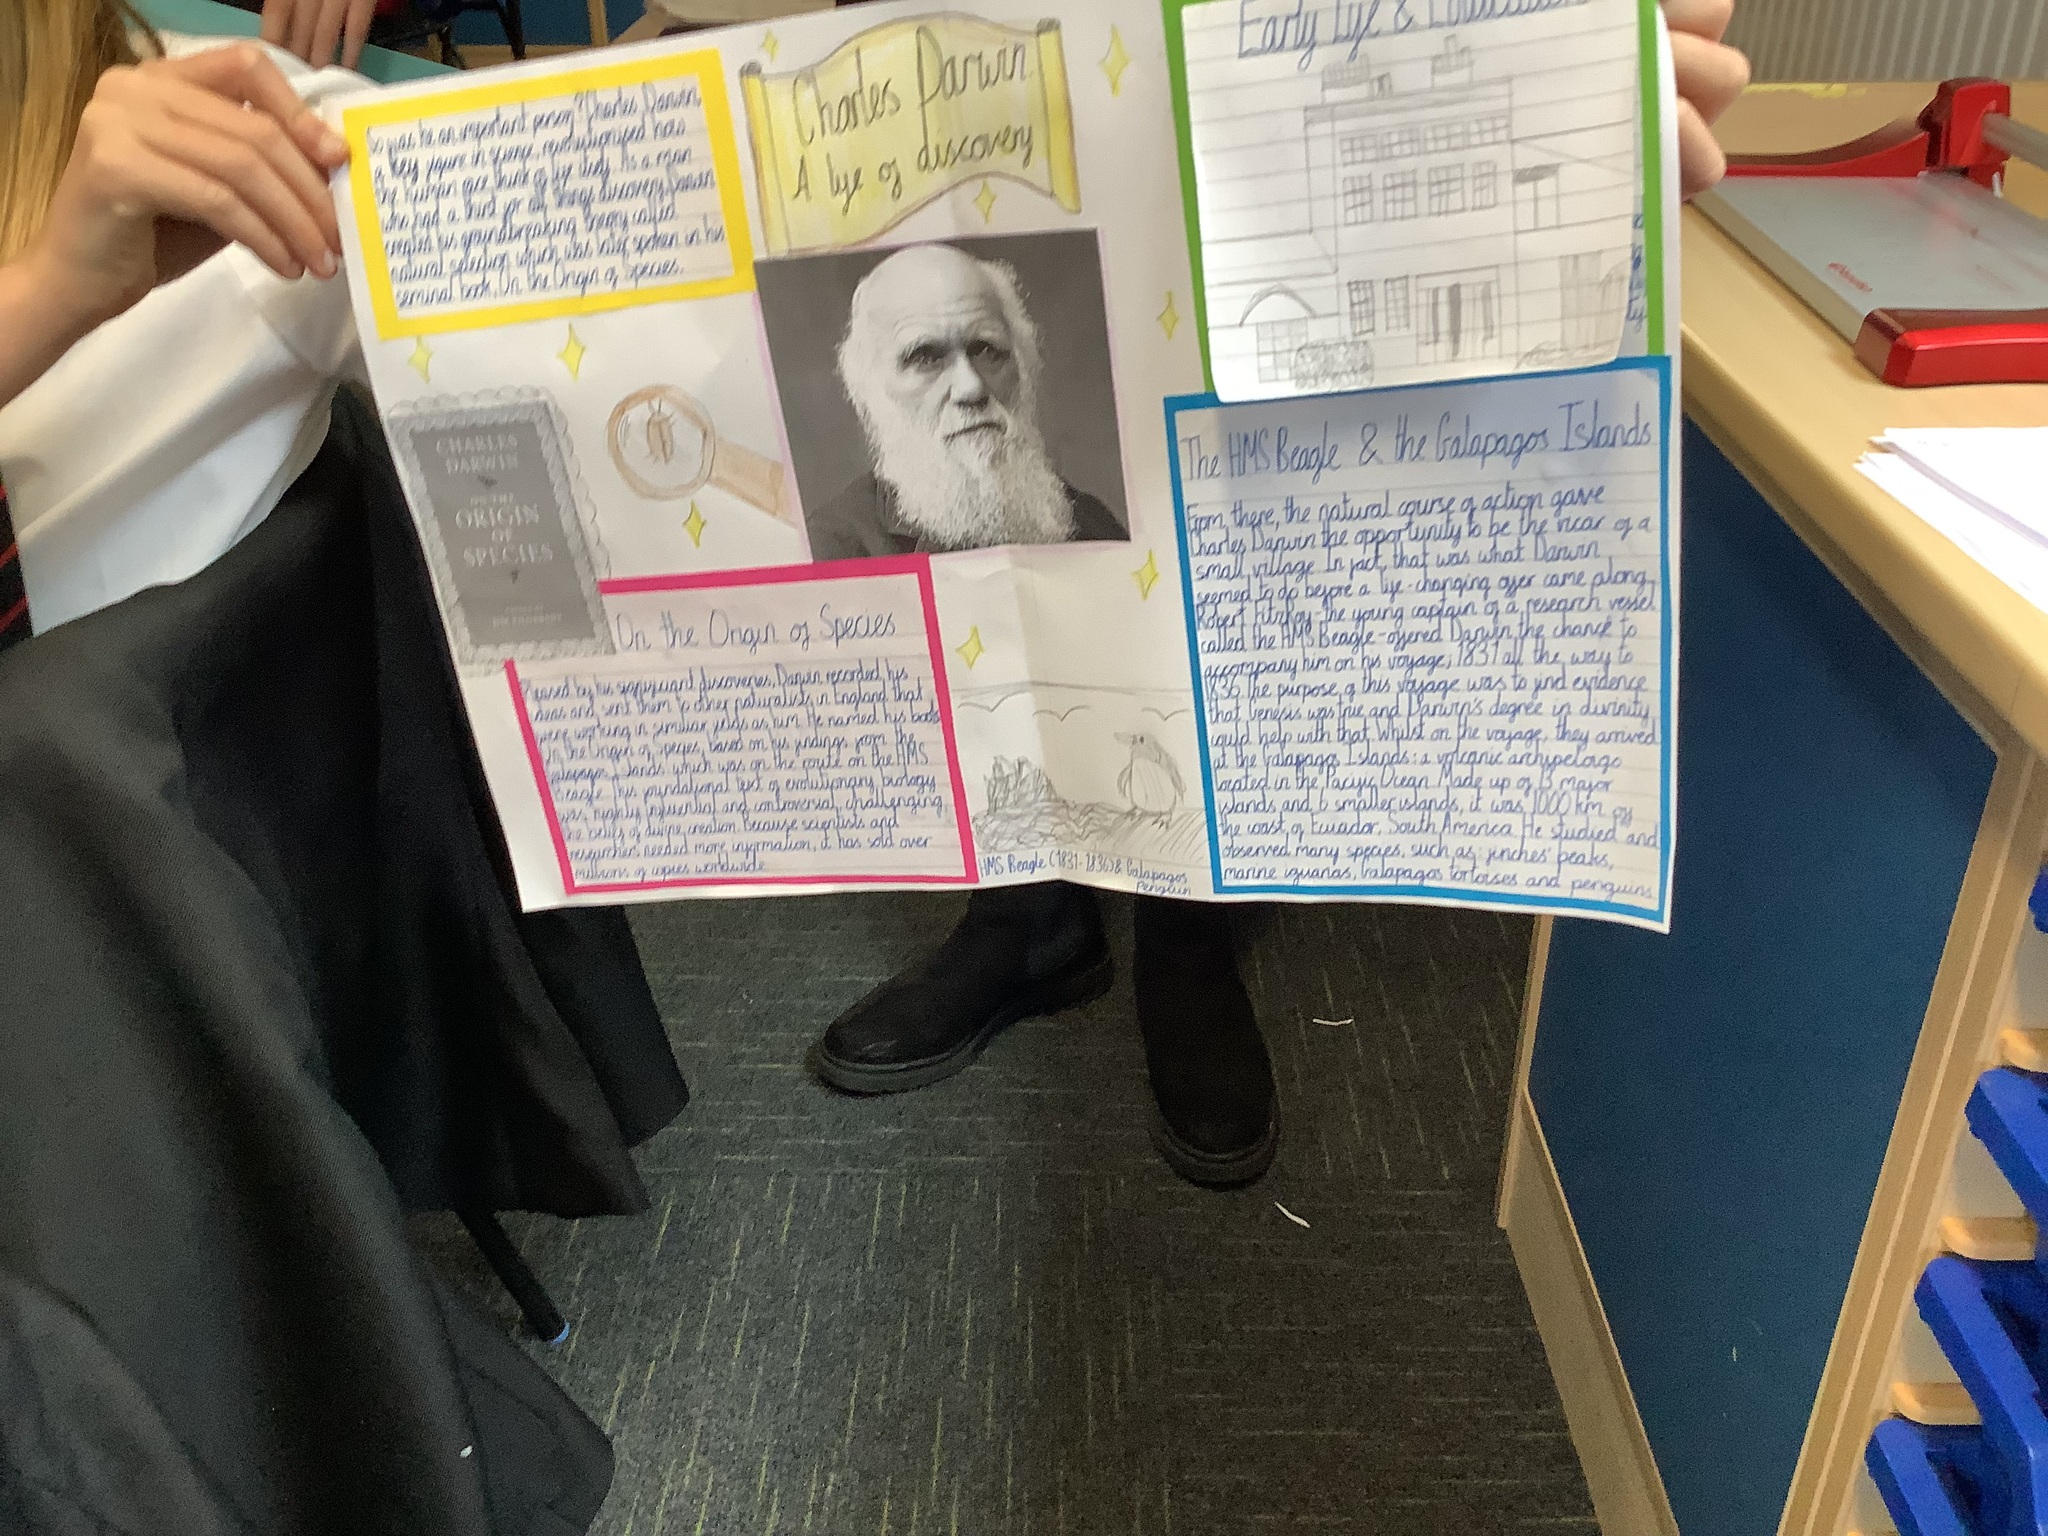 Charles Darwin
A life of discovery
So was he an important person? Charles Darwin,
a key figure in science, revolutionised how
the human race think of life itself. As a man
who had a thirst for all things discovery, Darwin
created his groundbreaking theory called
natural selection which was later spoken in his
seminal book, On the Origin of Species.
CHARLES
DARWIN
ON THE
ORIGIN
OF
SPECIES
On the Origin of Species
Pleased by his significant discoveries, Darwin recorded his
ideas and sent them to other naturalists in England that
were working in similiar fields as him. He named his book
On the Origin of Species, based on his findings from the
Galapagos Islands which was on the route on the HMS
Beagle. This foundational text of evolutionary biology
was highly influential and controversial, challenging
the belief of divine creation. Because scientists and
researchers needed more information, it has sold over
millions of copies worldwide.
HMS Beagle (1831-1836) & Galapagos
Penguin
Early Life & Education
The HMS Beagle & the Galapagos Islands
From there, the natural course of action gave
Charles Darwin the opportunity to be the vicar of a
small village. In fact, that was what Darwin
seemed to do before a life-changing offer came along.
Robert Fitzroy-the young captain of a research vessel
called the HMS Beagle-offered Darwin the chance to
accompany him on his voyage; 1831 all the way to
1836. The purpose of this voyage was to find evidence
that Genesis was true and Darwin's degree in divinity
could help with that. Whilst on the voyage, they arrived
at the Galapagos Islands: a volcanic archipelago
located in the Pacific Ocean. Made up of 13 major
islands and 6 smaller islands, it was 1000 km off
the coast of Ecuador, South America. He studied and
observed many species, such as: finches' beaks,
marine iguanas, Galapagos tortoises and penguins.